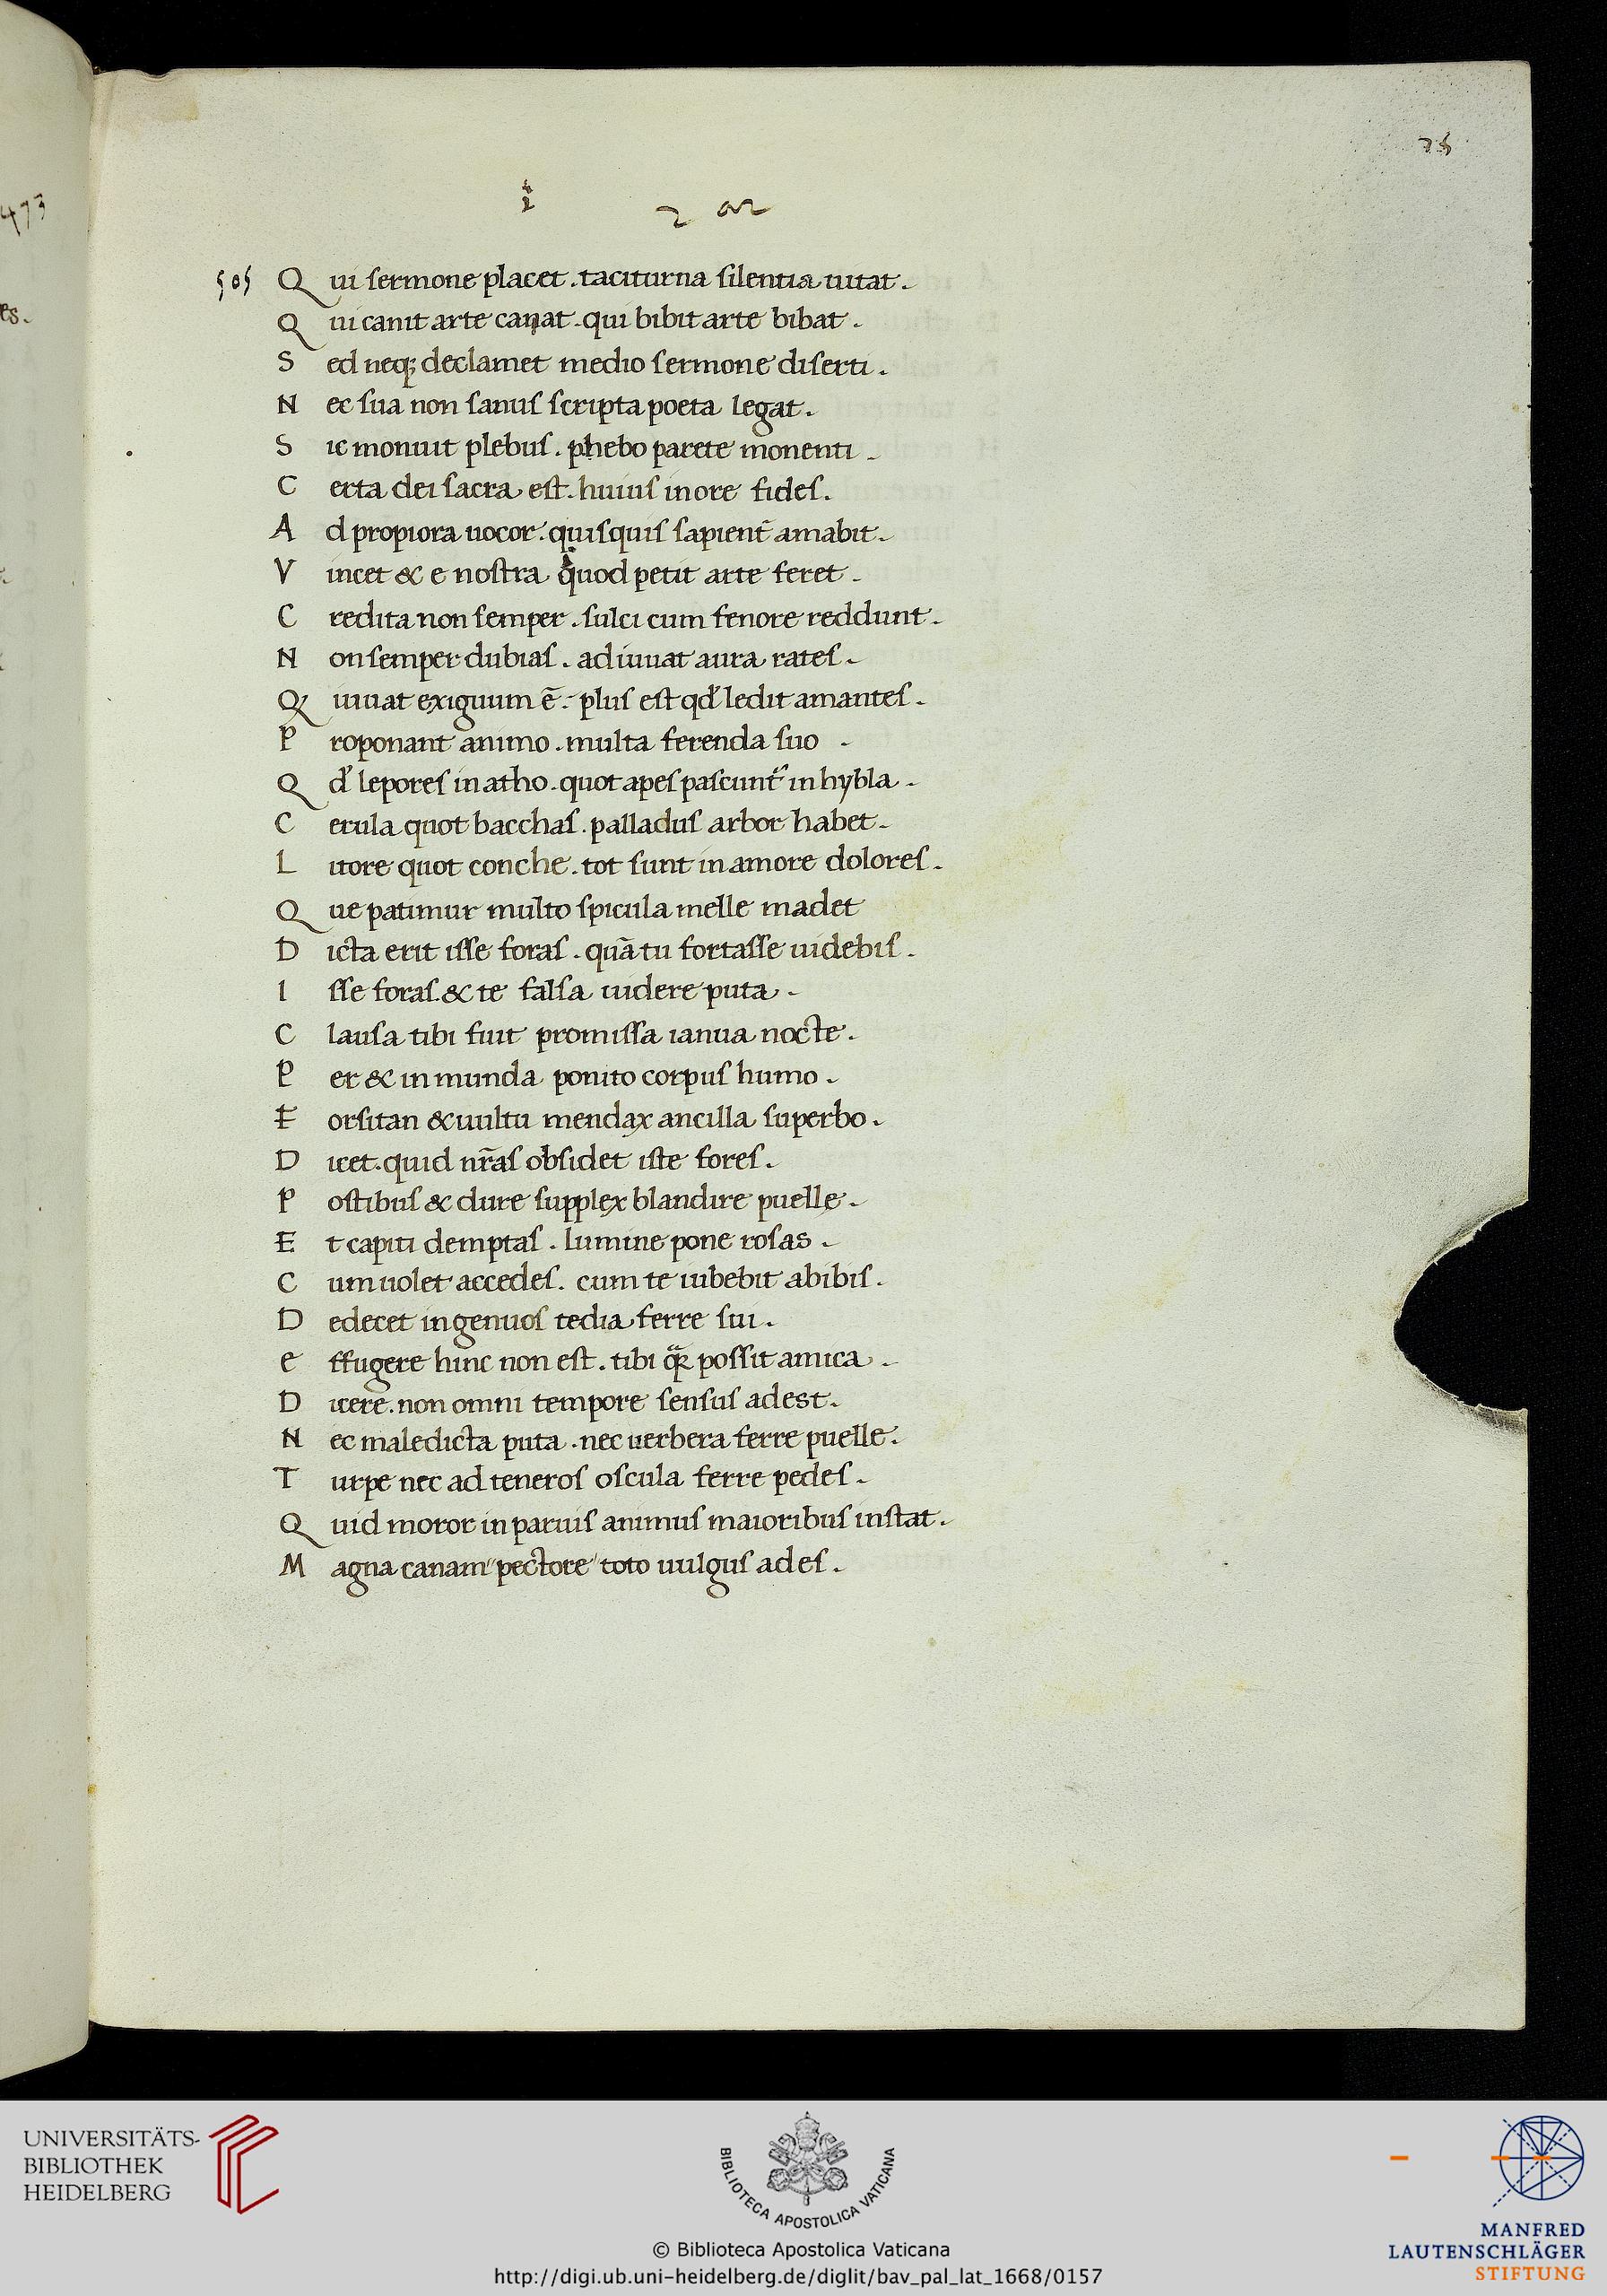 473
es.
75
i 2 ar
505 Qui sermone placet . taciturna silentia uitat .
Qui canit arte canat . qui bibit arte bibat .
Sed neq; declamet medio sermone diserti .
Nec sua non sanus scripta poeta legat .
Sic monuit plebus . phebo parete monenti .
Certa dei sacra est . huius in ore fides .
Ad propiora uocor . quisquis sapient̄ amabit .
Vincet & e nostra quod petit arte feret .
Credita non semper . sulci cum fenore reddunt .
Non semper dubias . adiuuat aura rates .
Q iuuat exiguum ē . plus est qd' ledit amantes .
Proponant animo . multa ferenda suo .
Qd' lepores in atho . quot apes pascunt᷑ in hybla .
Cerula quot bacchas . palladus arbor habet .
Litore quot conche . tot sunt in amore dolores .
Que patimur multo spicula melle madet
Dicta erit isse foras . quā tu fortasse uidebis .
Isse foras . & te falsa uidere puta .
Clausa tibi fuit promissa ianua nocte .
Per & inmunda ponito corpus humo .
Forsitan & uultu mendax ancilla superbo .
Dicet . quid nr̄as obsidet iste fores .
Postibus & dure supplex blandire puelle .
Et capiti demptas . lumine pone rosas .
Cum uolet accedes . cum te iubebit abibis .
Dedecet ingenuos tedia ferre sui .
effugere hinc non est . tibi qr̄ possit amica .
Dicere . non omni tempore sensus adest .
Nec maledicta puta . nec uerbera ferre puelle .
Turpe nec ad teneros oscula ferre pedes .
Quid moror in paruis animus maioribus instat .
Magna canam " pectore ' toto uulgus ades .
UNIVERSITÄTS-
BIBLIOTHEK
HEIDELBERG
BIBLIOTECA APOSTOLICA VATICANA
© Biblioteca Apostolica Vaticana
http://digi.ub.uni-heidelberg.de/diglit/bav_pal_lat_1668/0157
MANFRED
LAUTENSCHLÄGER
STIFTUNG